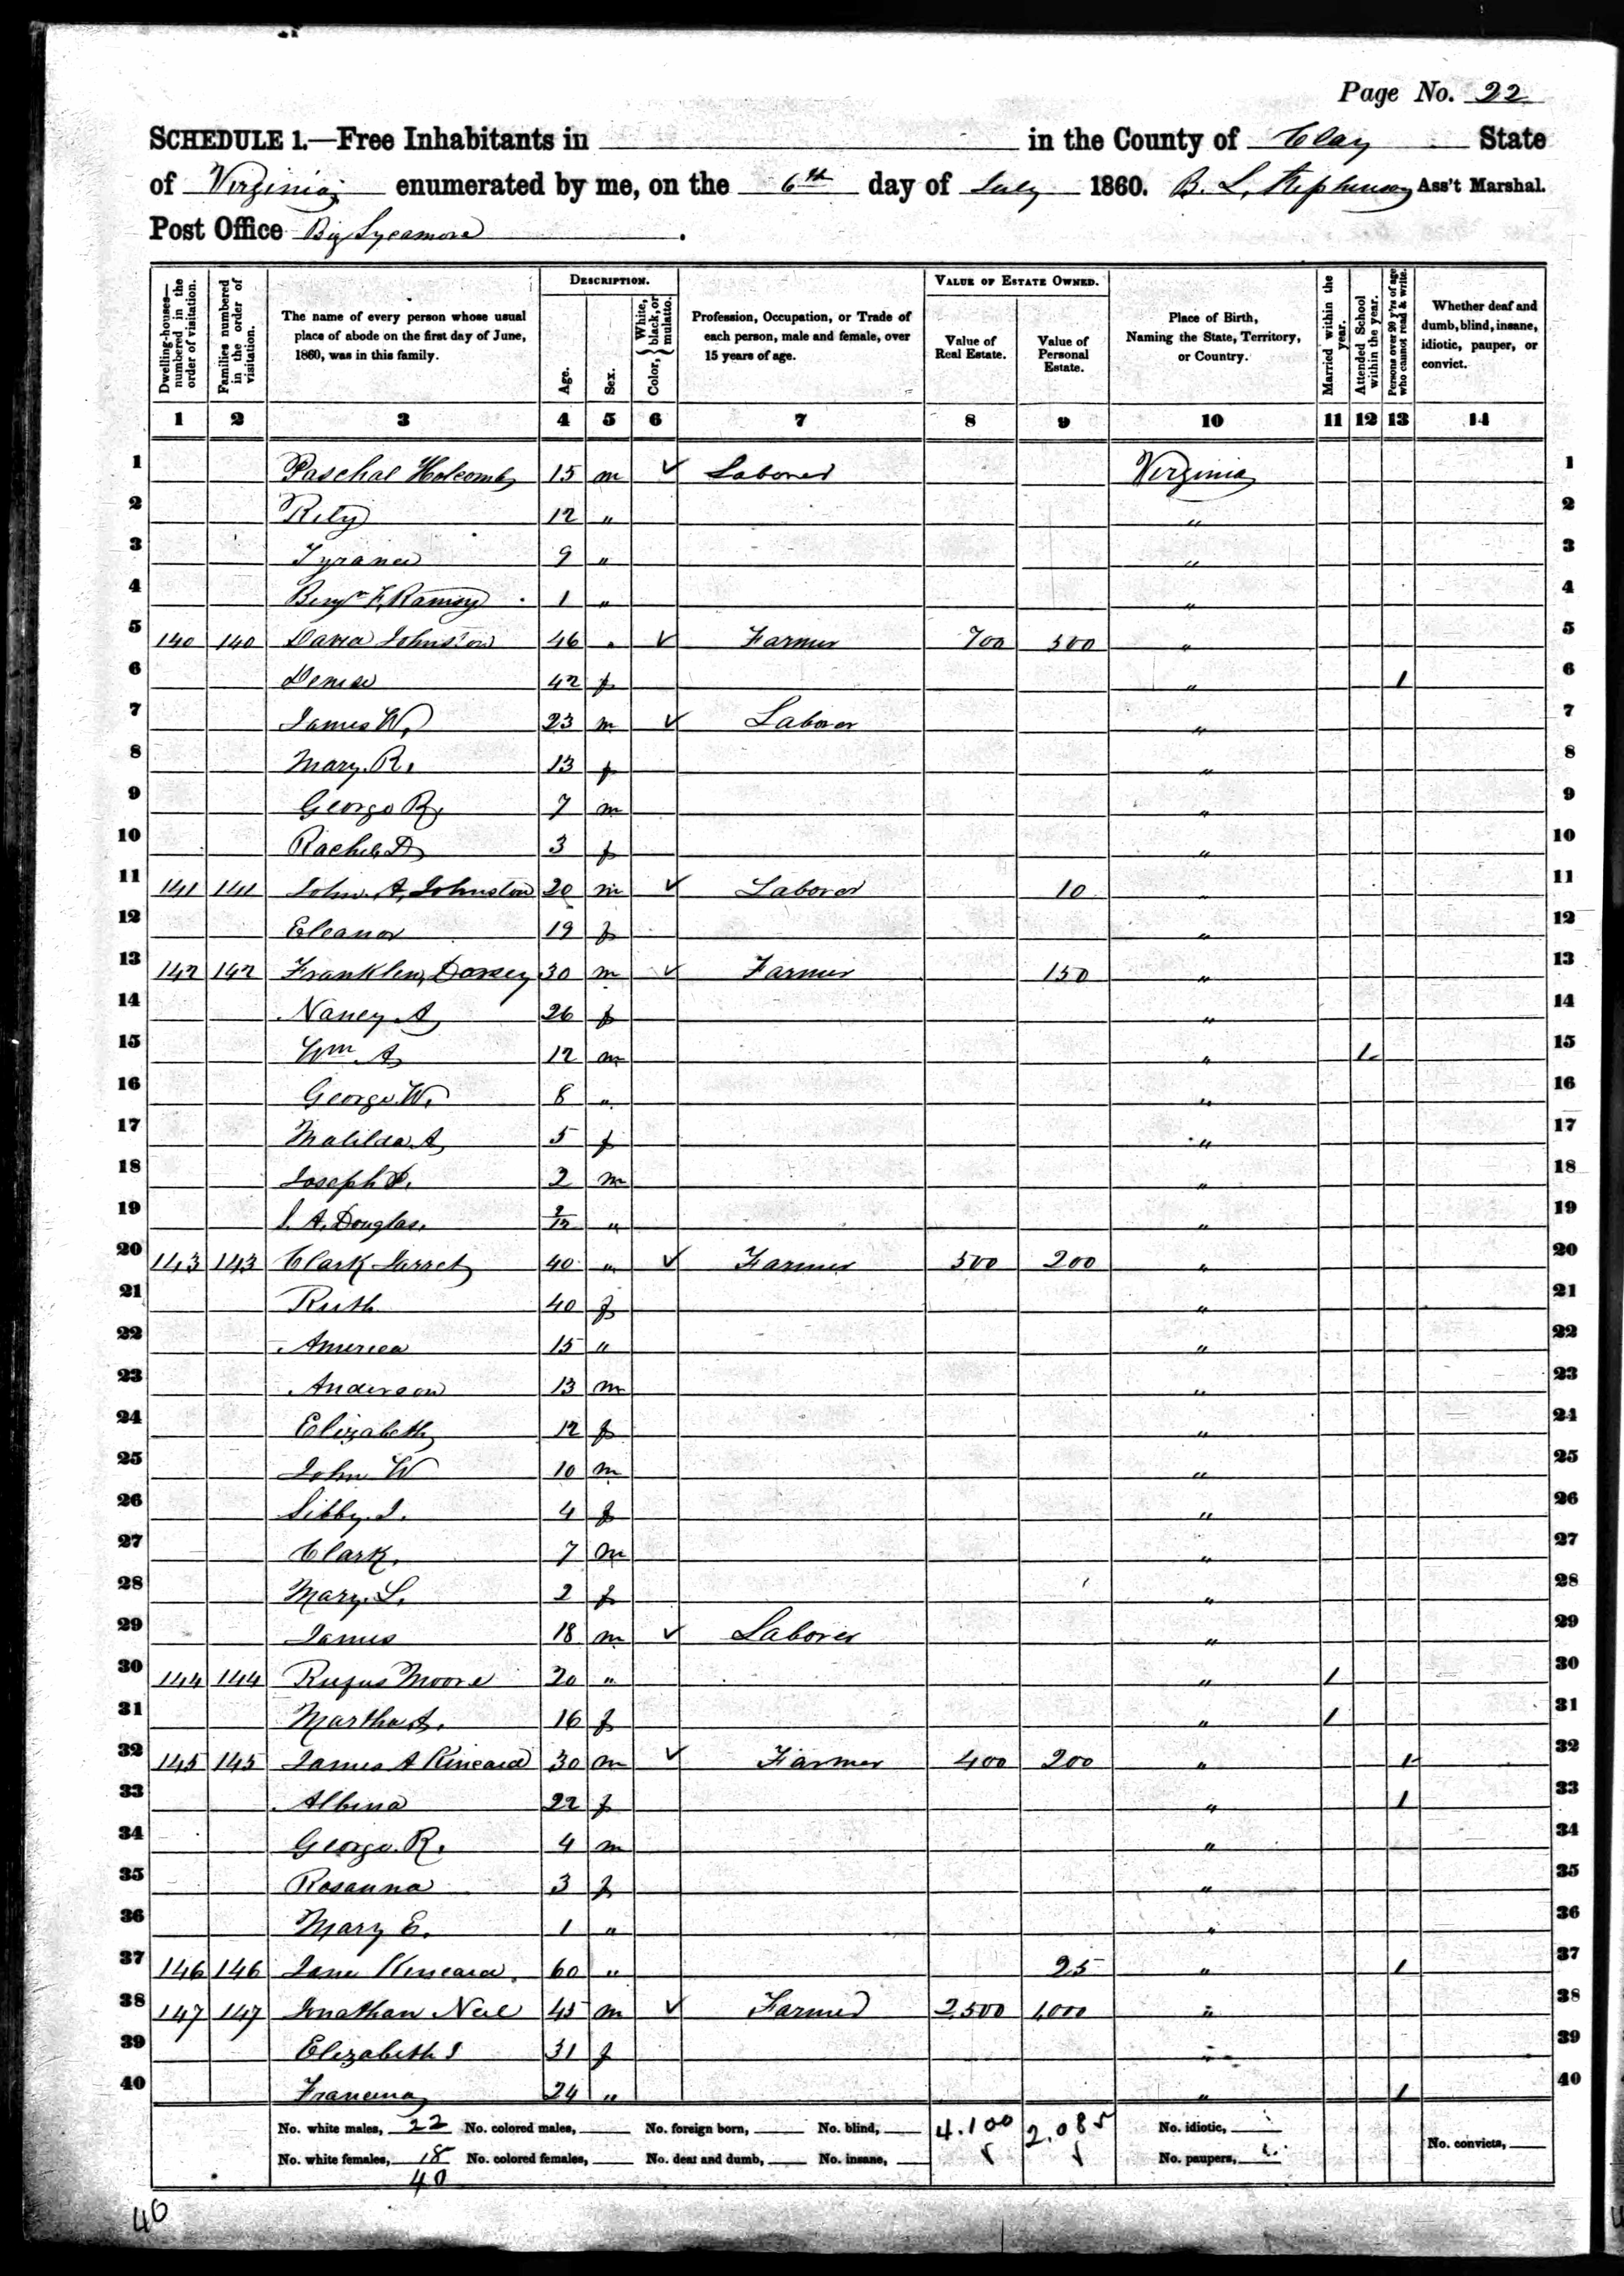 Page No. 22
SCHEDULE 1.—Free Inhabitants in in the County of Clay State
of Virginia enumerated by me, on the 6th day of July 1860. B. L. Stephenson Ass't Marshal.
Post Office Big Sycamore .
Dwelling-houses—numbered in the order of visitation. Families numbered in the order of visitation. The name of every person whose usual place of abode on the first day of June, 1860, was in this family. DESCRIPTION. Age. Sex. Color, { White, black, or mulatto. Profession, Occupation, or Trade of each person, male and female, over 15 years of age. VALUE OF ESTATE OWNED. Value of Real Estate. Value of Personal Estate. Place of Birth, Naming the State, Territory, or Country. Married within the year. Attended School within the year. Persons over 20 y'rs of age who cannot read & write. Whether deaf and dumb, blind, insane, idiotic, pauper, or convict.
1 2 3 4 5 6 7 8 9 10 11 12 13 14
1 Paschal Holcomb 15 m ✓ Laborer Virginia 1
2 Rily 12 " " 2
3 9 " " 3
4 Benjn F. Ramsy 1 " " 4
5 140 140 David Johnston 46 " ✓ Farmer 700 500 " 5
6 42 f " 1 6
7 James W. 23 m ✓ Laborer " 7
8 Mary R. 13 f " 8
9 George R. 7 m " 9
10 Rachel D 3 f " 10
11 141 141 John A. Johnston 20 m ✓ Laborer 10 " 11
12 Eleanor 19 f " 12
13 142 142 Franklin Dorsey 30 m ✓ Farmer 150 " 13
14 Nancy A 26 f " 14
15 Wm. A 12 m " 1 15
16 George W. 8 " " 16
17 Matilda A 5 f " 17
18 Joseph 2 m " 18
19 S. A. Douglas. 2/12 " " 19
20 143 143 Clark Jarret 40 " ✓ Farmer 500 200 " 20
21 Ruth 40 f " 21
22 America 15 " " 22
23 Anderson 13 m " 23
24 Elizabeth 12 f " 24
25 John W 10 m " 25
26 Sibby J. 4 f " 26
27 Clark. 7 m " 27
28 Mary L. 2 f " 28
29 James 18 m ✓ Laborer " 29
30 144 144 Rufus Moore 20 " " 1 30
31 Martha A. 16 f " 1 31
32 145 145 James A Kincaid 30 m ✓ Farmer 400 200 " 1 32
33 Albina 22 f " 1 33
34 George R. 4 m " 34
35 Rosanna 3 f " 35
36 Mary E. 1 " " 36
37 146 146 Jane Kincaid. 60 " 25 " 1 37
38 147 147 Jonathan Neil 45 m ✓ Farmer 2,500 1,000 " 38
39 Elizabeth J 31 f " 39
40 24 " " 1 40
No. white males, 22 No. colored males, No. foreign born, No. blind, 4.100 2.085 No. idiotic,
No. white females, 18 No. colored females, No. deaf and dumb, No. insane, No. paupers, No. convicts,
40
40